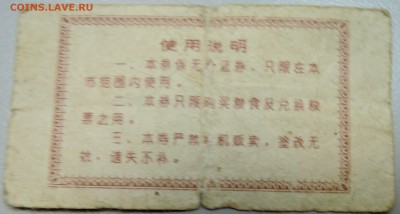 COINS.LAVE.RU
使用说明
一、本券系无价证券，只限在本
市范围内使用。
二、本券只限购买粮食及兑换粮
票之用。
三、本券严禁 机贩卖，涂改无
效，遗失不补。